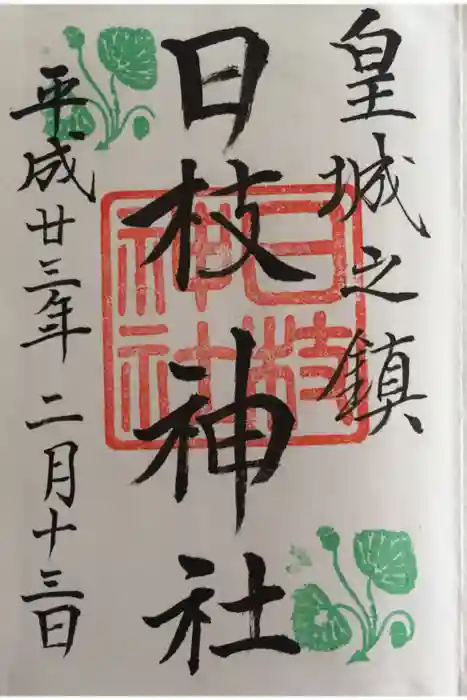 皇城之鎮
日枝神社
日枝神社
平成廿三年 二月十三日